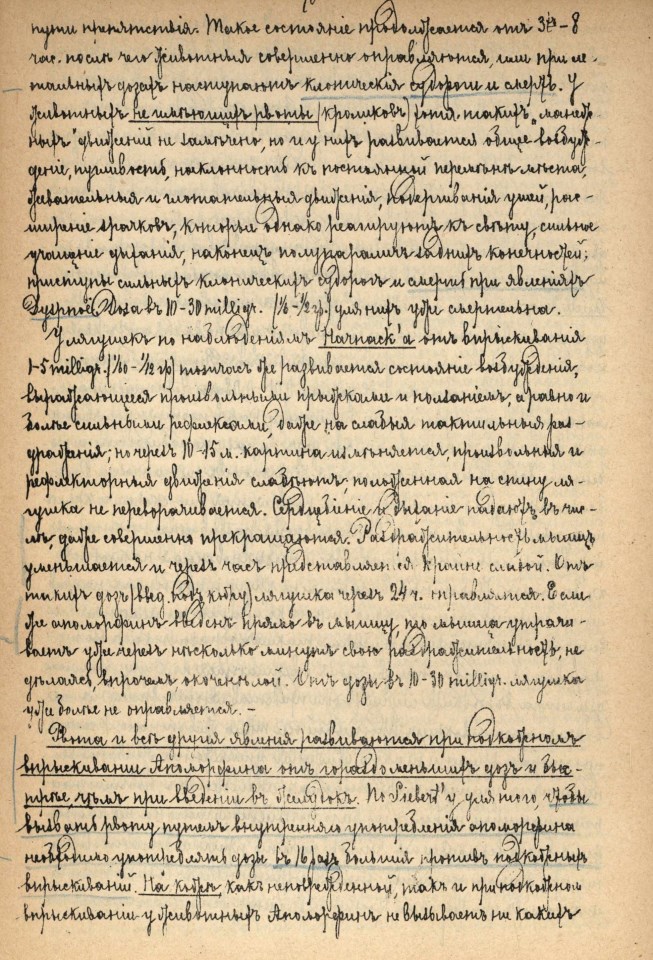 пути препятствія. Такое состояніе продолжается отъ 3-8
час. послѣ чего животныя совершенно оправляются, или при ле-
тальныхъ дозахъ наступаютъ клоническія судороги и смерть. У
животныхъ не имѣющихъ рвоты (кроликовъ) хотя такихъ „манеж-
ныхъ" движеній не замѣчено, но и у нихъ развивается общее возбуж-
деніе, пугливость, наклонность къ постоянной перемѣнѣ мѣста,
жевательныя и глотательныя движенія, подергиванія ушей, рас-
ширеніе зрачковъ, которые однако реагируютъ къ свѣту, сильное
учащеніе дыханія, наконецъ полупараличъ заднихъ конечностей;
приступы сильныхъ клоническихъ судорогъ и смерть при явленіяхъ
Dyspnoë. Доза въ 10-30 milligr. (1/6 - 1/2 гр.) для нихъ уже смертельна.
У лягушекъ по наблюденіямъ Harnack'а отъ впрыскиванія
1-5 milligr. (1/60 - 1/12 гр) тотчасъ же развивается состояніе возбужденія,
выражающееся произвольными прыжками и ползаніемъ, а равно и
болѣе сильными рефлексами, даже на слабыя тактильныя раз-
драженія; но черезъ 10-15 м. картина измѣняется, произвольныя и
рефлекторныя движенія слабѣютъ, положенная на спину ля-
гушка не переворачивается. Сердцебіеніе и дыханіе падаютъ въ чис-
лѣ, даже совершенно прекращаются. Раздражительность мышцъ
уменьшается и черезъ часъ представляется крайне слабой. Отъ
такихъ дозъ (введ. подъ кожу) лягушка черезъ 24 ч. оправляется. Если
же апоморфинъ введенъ прямо въ мышцу, то мышца утрачи-
ваетъ уже черезъ нѣсколько минутъ свою раздражительность, не
дѣлаясь, впрочемъ, окоченѣлой. Отъ дозы въ 10-30 milligr. лягушка
уже болѣе не оправляется. -
Рвота и всѣ другія явленія развиваются при подкожномъ
впрыскиваніи Апоморфина отъ гораздо меньшихъ дозъ и быс-
трѣе чѣмъ при введеніи въ желудокъ. По Siebert'у для того чтобы
вызвать рвоту путемъ внутренняго употребленія апоморфина
необходимо употреблять дозы въ 16 разъ большія противъ подкожныхъ
впрыскиваній. На кожѣ, какъ неповрежденной, такъ и при подкожномъ
впрыскиваніи у животныхъ Апоморфинъ не вызываетъ ни какихъ